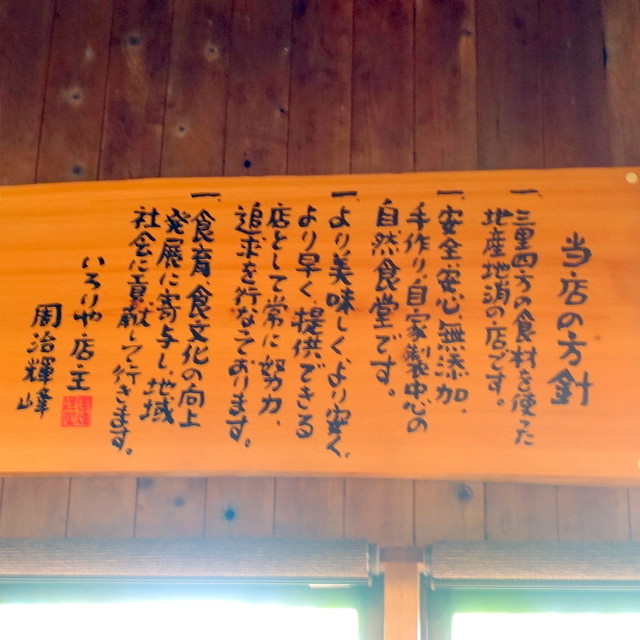 当店の方針
一、三里四方の食材を使った
地産地消の店です。
一、安全、安心、無添加、
手作り、自家製中心の
自然食堂です。
一、より美味しく、より安く、
より早く、提供できる
店として常に努力、
追求を行なっております。
一、食育、食文化の向上
発展に寄与し、地域
社会に貢献して行きます。
いろりや店主
周治輝峰